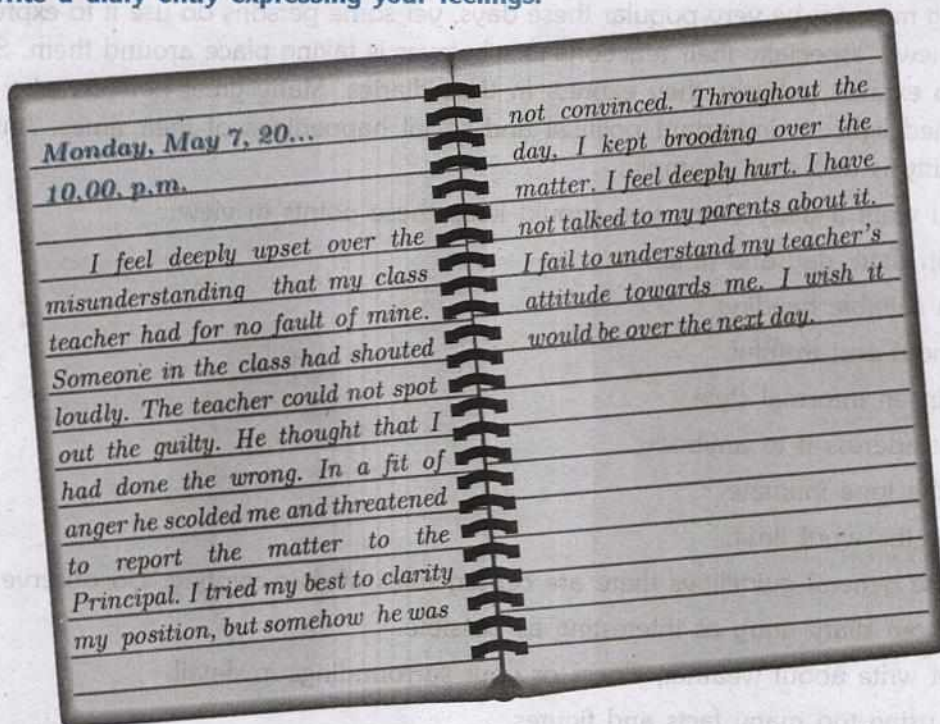 Write a diary entry expressing your feelings.
Monday, May 7, 20...
10.00. p.m.
I feel deeply upset over the
misunderstanding that my class
teacher had for no fault of mine.
Someone in the class had shouted
loudly. The teacher could not spot
out the guilty. He thought that I
had done the wrong. In a fit of
anger he scolded me and threatened
to report the matter to the
Principal. I tried my best to clarity
my position, but somehow he was
not convinced. Throughout the
day, I kept brooding over the
matter. I feel deeply hurt. I have
not talked to my parents about it.
I fail to understand my teacher's
attitude towards me. I wish it
would be over the next day.